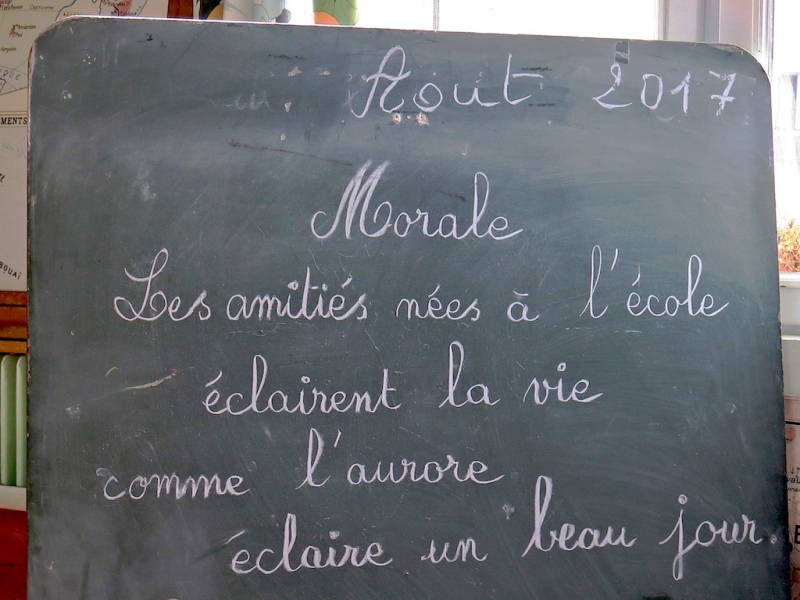 Août 2017
Morale
Les amitiés nées à l'école
éclairent la vie
comme l'aurore
éclaire un beau jour.
MENTS